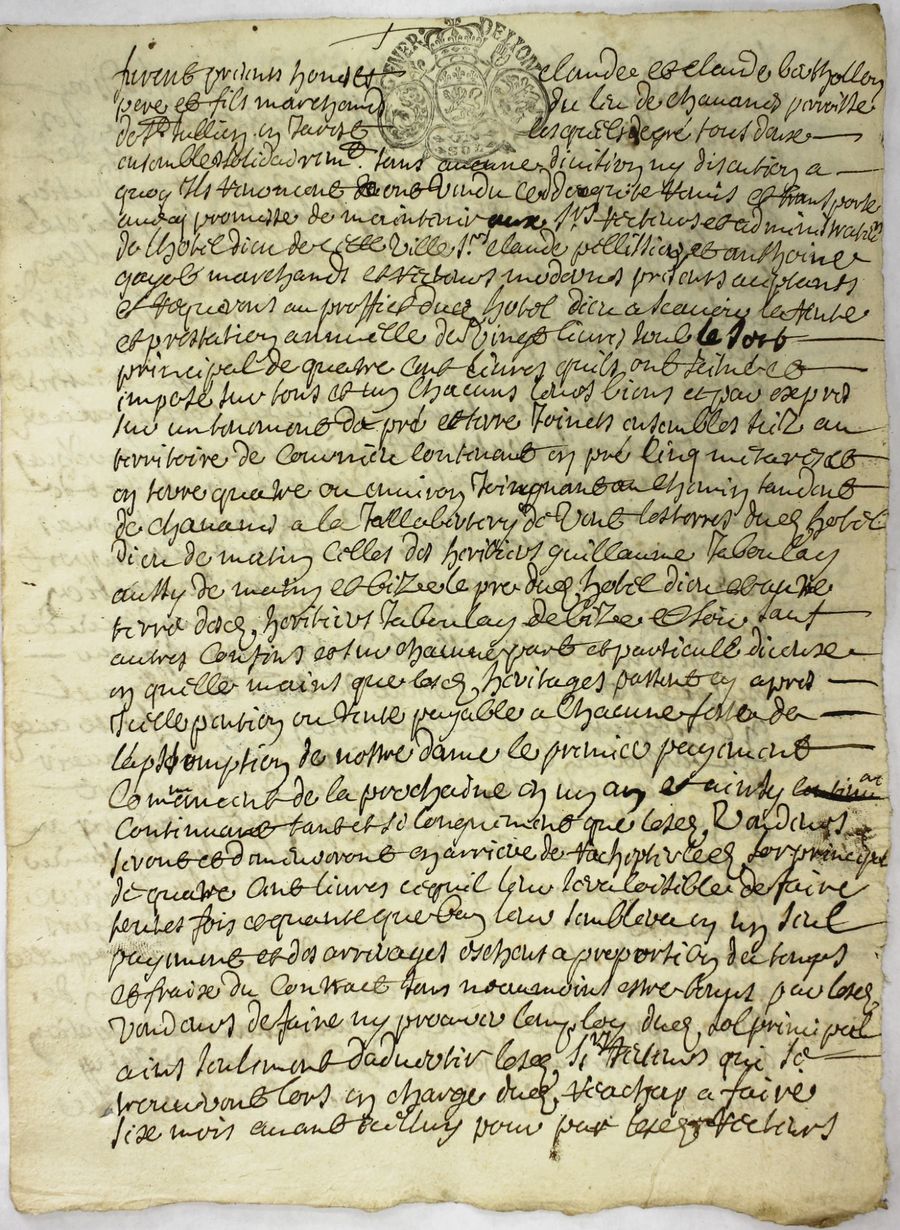 furent presents honestes claude et claude berthollon
pere et fils marchand du lieu de chauanes parroisse
de St Jullien en Jarest lesquels de gré tous deux
ensemble solidairemt. sans aucune diuision ny discution a
quoy ils renoncent ont vendu cedde quite remis et transporte
auecq promesse de maintenir aux Srs recteurs et administrateurs
de lhotel dieu de cette ville Srs claude pellissier et anthoine
gayot marchands et recteurs modernes presents acceptants
et requerans au proffict dud. hotel dieu a scauoir la rente
et prestation annuelle de vingt liures soubs le sort
principal de quatre cent liures quils ont assis et
imposé sur tous et un chacuns leurs biens et par expres
sur un tenement de pré et terre joincts ensembles size au
territoire de contenant en pré cinq meterees et
en terre quatre ou enuiron joingnant au chemin tendant
de chauanes a la de vent les terres dud. hotel
dieu de matin celles des heritiers guillaume
aussy de matin et bize le pre dud. hotel dieu et autre
terre desd. heritiers de bize et soir sauf
autres confins et sur chacune part et particulle diceux
en quelle mains que lesd. heritages passent cy apres
Icelle pention ou rente payable a chacune feste de
lassomption de nostre dame le premier payement
Commencent de la prochaine en un an et ainsy
Continuant tant et si longuement que lesd. Vendeurs
seront et demeureront en arriere de rachepter led. sor principal
de quatre cent liures ce quil leur sera loisible de faire
toutes fois et quante que bon leur semblera en un seul
payement et des arrerages escheus a proportion du temps
et fraix du Contract sans neanmoint estre tenus par lesd.
Vendeurs de faire ny procurer lemploy dud. sol principal
ains seulement daduertir lesd. Srs recteurs qui se
trouueront lors en charge dud. reachap a faire
six mois auant icelluy pour par lesd. recteurs